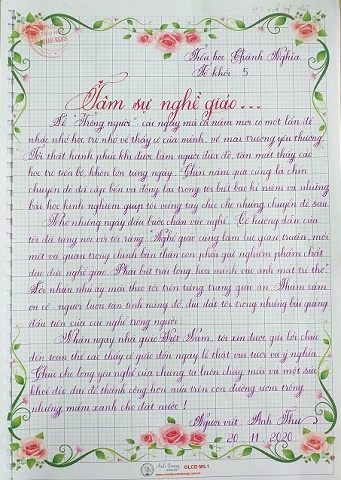 Tiểu học Chánh Nghĩa
Tổ khối 5
Tâm sự nghề giáo...
Lễ "Trồng người" cái ngày mà cả năm mới có một lần để
nhắc nhở học trò nhớ về thầy cô của mình, về mái trường yêu thương.
Tôi thật hạnh phúc khi được làm người đưa đò, tận mắt thấy các
học trò tiến bộ, khôn lớn từng ngày. Chín năm qua cũng là chín
chuyến đò đã cập bến và đọng lại trong tôi biết bao kỉ niệm và những
bài học kinh nghiệm giúp tôi vững tay chèo cho những chuyến đò sau.
Nhớ những ngày đầu bước chân vào nghề. Cô hướng dẫn của
tôi đã từng nói với tôi rằng "Nghề giáo cũng lắm lúc gian truân, mỏi
mệt và quan trọng chính bản thân con phải giữ nghiêm phẩm chất
đạo đức nghề giáo. Phải biết trải lòng hòa mình với ánh mắt trẻ thơ".
Lời nhắn nhủ ấy mãi theo tôi trên từng trang giáo án. Thầm cảm
ơn cô người luôn tận tình nâng đỡ, dìu dắt tôi trong những bài giảng
đầu tiên của cái nghề trồng người.
Nhân ngày nhà giáo Việt Nam, tôi xin được gửi lời chúc
đến toàn thể các thầy cô giáo đón ngày lễ thật vui tươi và ý nghĩa.
Chúc cho lòng yêu nghề của chúng ta luôn cháy mãi và một sức
khoẻ dẻo dai để thành công hơn nữa trên con đường ươm trồng
những mầm xanh cho đất nước!
Người viết: Anh Thư
20-11-2020
GLCD MS.1